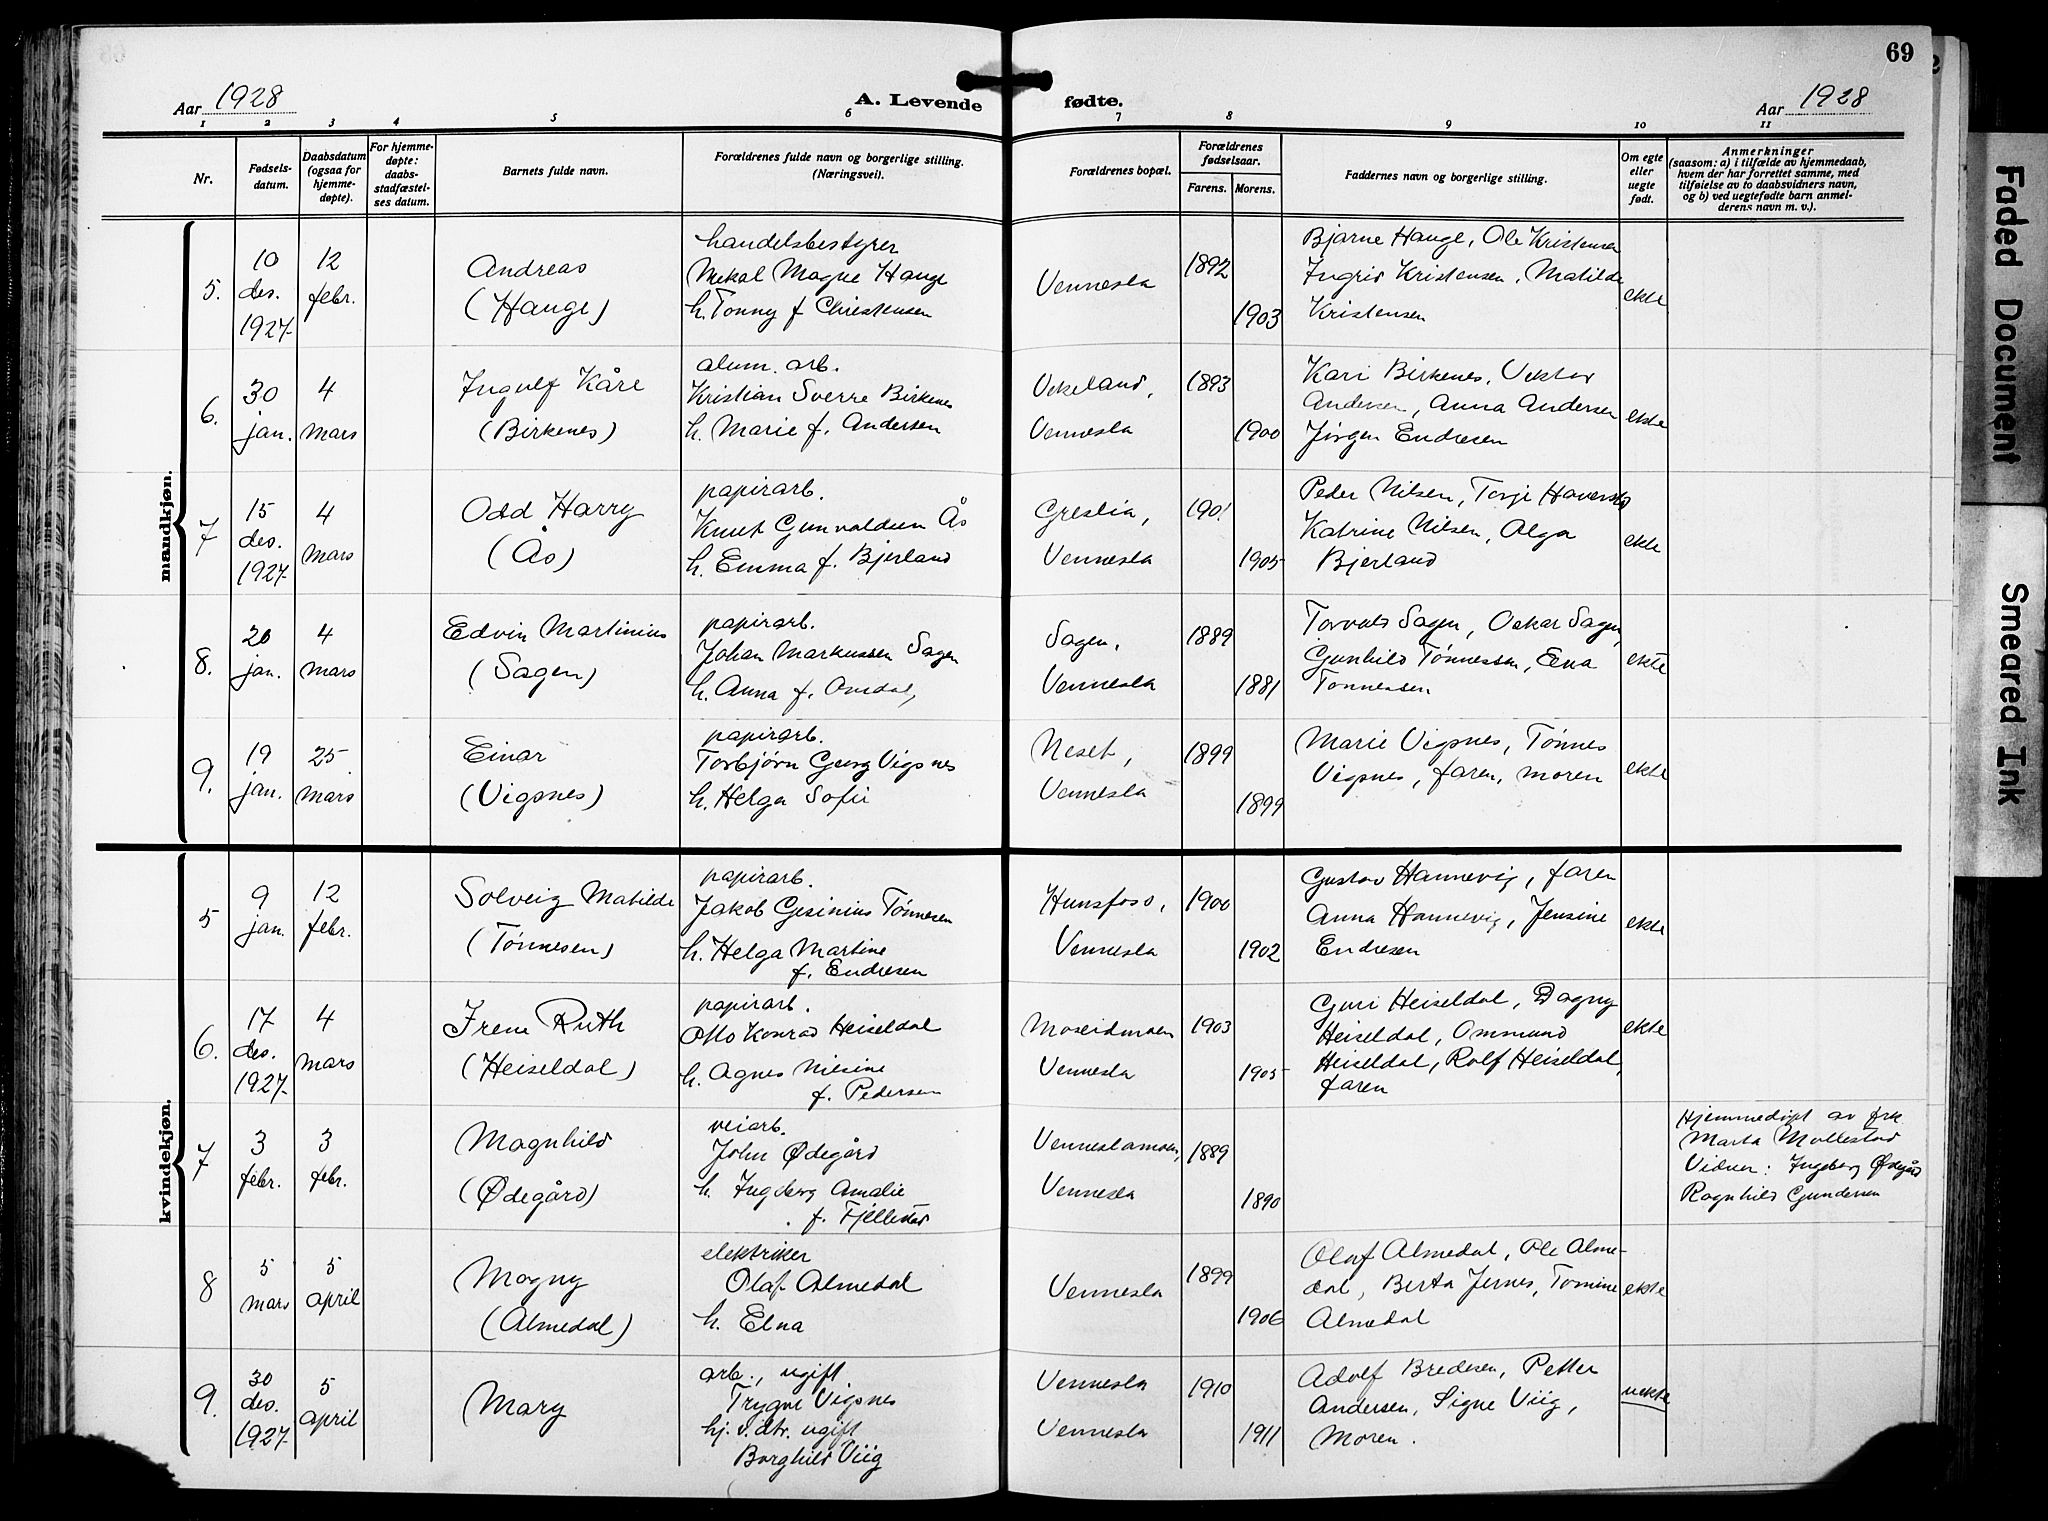 69
Aar 1928
A. Levende fødte.
Aar 1928
1 2 3 4 5 6 7 8 9 10 11
Nr.
Fødsels-
datum.
Daabsdatum
(ogsaa for
hjemme-
døpte).
For hjemme-
døpte:
daabs-
stadfæstel-
ses datum.
Barnets fulde navn.
Forældrenes fulde navn og borgerlige stilling.
(Næringsvei).
Forældrenes bopæl.
Forældrenes
fødselsaar.
Farens. Morens.
Faddernes navn og borgerlige stilling.
Om egte
eller
uegte
født.
Anmerkninger
(saasom: a) i tilfælde av hjemmedaab,
hvem der har forrettet samme, med
tilføielse av to daabsvidners navn,
og b) ved uegtefødte barn anmel-
derens navn m. v.).
mandkjøn.
5.
10
des.
1927-
12
febr.
Andreas
(Hauge)
handelsbestyrer
Mikal Magne Hauge
h. Tonny f Christensen
Vennesla
1892
1903
Bjarne Hauge, Ole Kristensen
Ingrid Kristensen, Matilde
Kristensen
ekte
6.
30
jan.
4
mars
Ingulf Kåre
(Birkenes)
alum. arb.
Kristian Sverre Birkenes
h. Marie f. Andersen
Vikeland,
Vennesla
1893
1900
Kari Birkenes, Viktor
Andersen, Anna Andersen
Jørgen Endresen
ekte
7
15
des.
1927-
4
mars
Odd Harry
(Ås)
papirarb.
Knut Gunvaldsen Ås
h. Emma f. Bjerland
Greslia,
Vennesla
1901
1905
Peder Nilsen, Torje
Katrine Nilsen, Alga
Bjerland
ekte
8.
20
jan.
4
mars
Edvin Martinius
(Sagen)
papirarb.
Johan Markussen Sagen
h. Anna f. Omdal,
Sagen,
Vennesla
1889
1881
Torvals Sagen, Oskar Sagen,
Gunhild Tønnessen, Ena
Tønnessen
ekte
9.
19
jan.
25
mars
Einar
(Vigsnes)
papirarb.
Torbjørn Georg Vigsnes
h. Helga Sofie
Neset,
Vennesla
1899
1899
Marie Vigsnes, Tønnes
Vigsnes, faren, moren
ekte
kvindekjøn.
5
9
jan.
12
febr.
Solveig Matilde
(Tønnesen)
papirarb.
Jakob Gesinius Tønnesen
h. Helga Martine
f. Endresen
Hunsfoss,
Vennesla
1900
1902
Gustav Hannevig, faren
Anna Hannevig, Jensine
Endresen
ekte
6.
17
des.
1927-
4
mars
Irene Ruth
(Heiseldal)
papirarb.
Otto Konrad Heiseldal
h. Agnes Nilsine
f. Pedersen
Moseidmoen
Vennesla
1903
1905
Guri Heiseldal, Dagny
Heiseldal, Ommund
Heiseldal, Rolf Heiseldal,
faren
ekte
7
3
febr.
3
febr.
Magnhild
(Ødegård)
veiarb.
John Ødegård
h. Ingeborg Amalie
f. Fjellestad
Venneslamoen,
Vennesla
1889
1890
Hjemmedøpt av frk
Marta Mollestad
Vidner: Ingeborg Ødegård
Ragnhild Gundersen
8
5
mars
5
april
Magny
(Almedal)
elektriker
Olaf Almedal
h. Elna
Vennesla
1899
1906
Olaf Almedal, Ole Alme-
dal, Berta Jernes, Tomine
Almedal
ekte
9.
30
des.
1927-
5
april
Mary
arb., ugift
Trygve Vigsnes
hj. v. dtr. ugift
Borghild Viig
Vennesla
Vennesla
1910
1911
Adolf Bredesen, Petter
Andersen, Signe Viig,
moren.
uekte
Faded Document
Smeared Ink